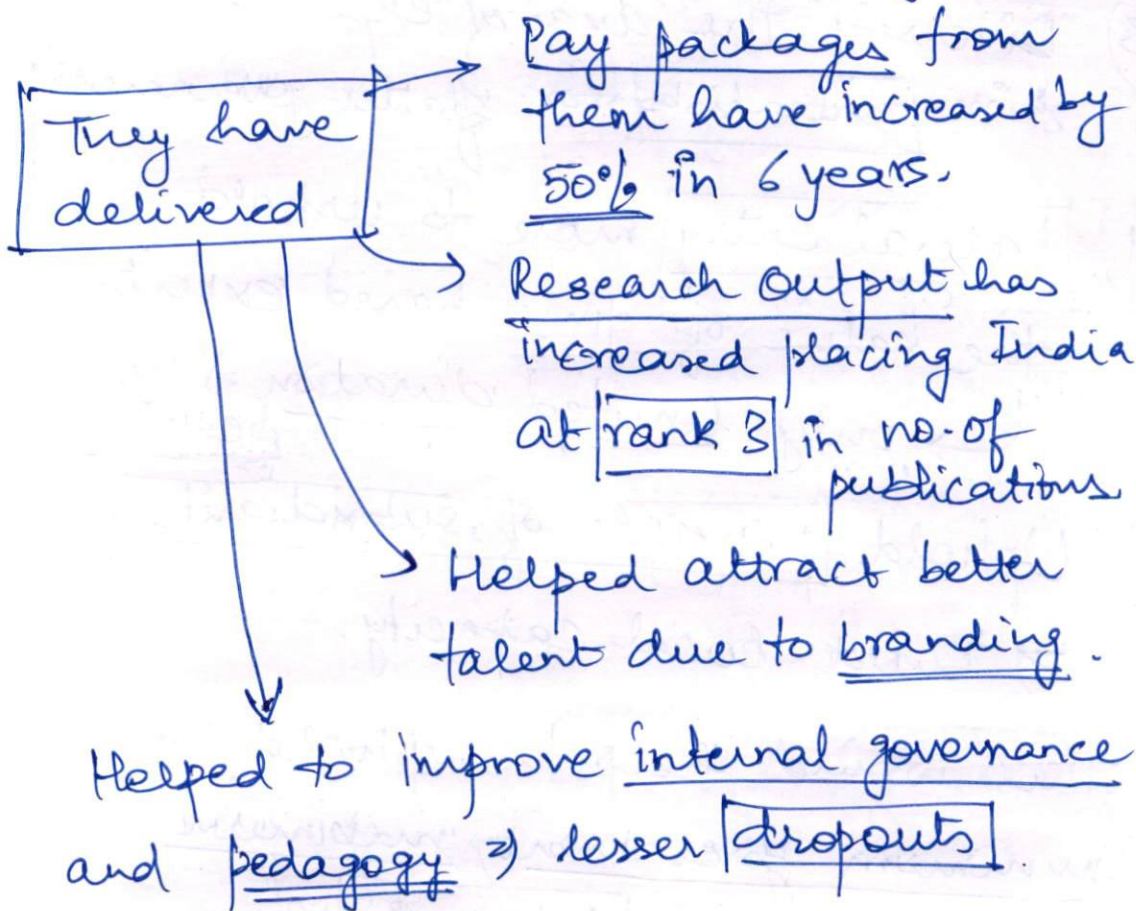 They have
delivered
Pay packages from
them have increased by
50% in 6 years.
Research output has
increased placing India
at rank 3 in no. of
publications
Helped attract better
talent due to branding.
Helped to improve internal governance
and pedagogy ⇒ lesser dropouts.